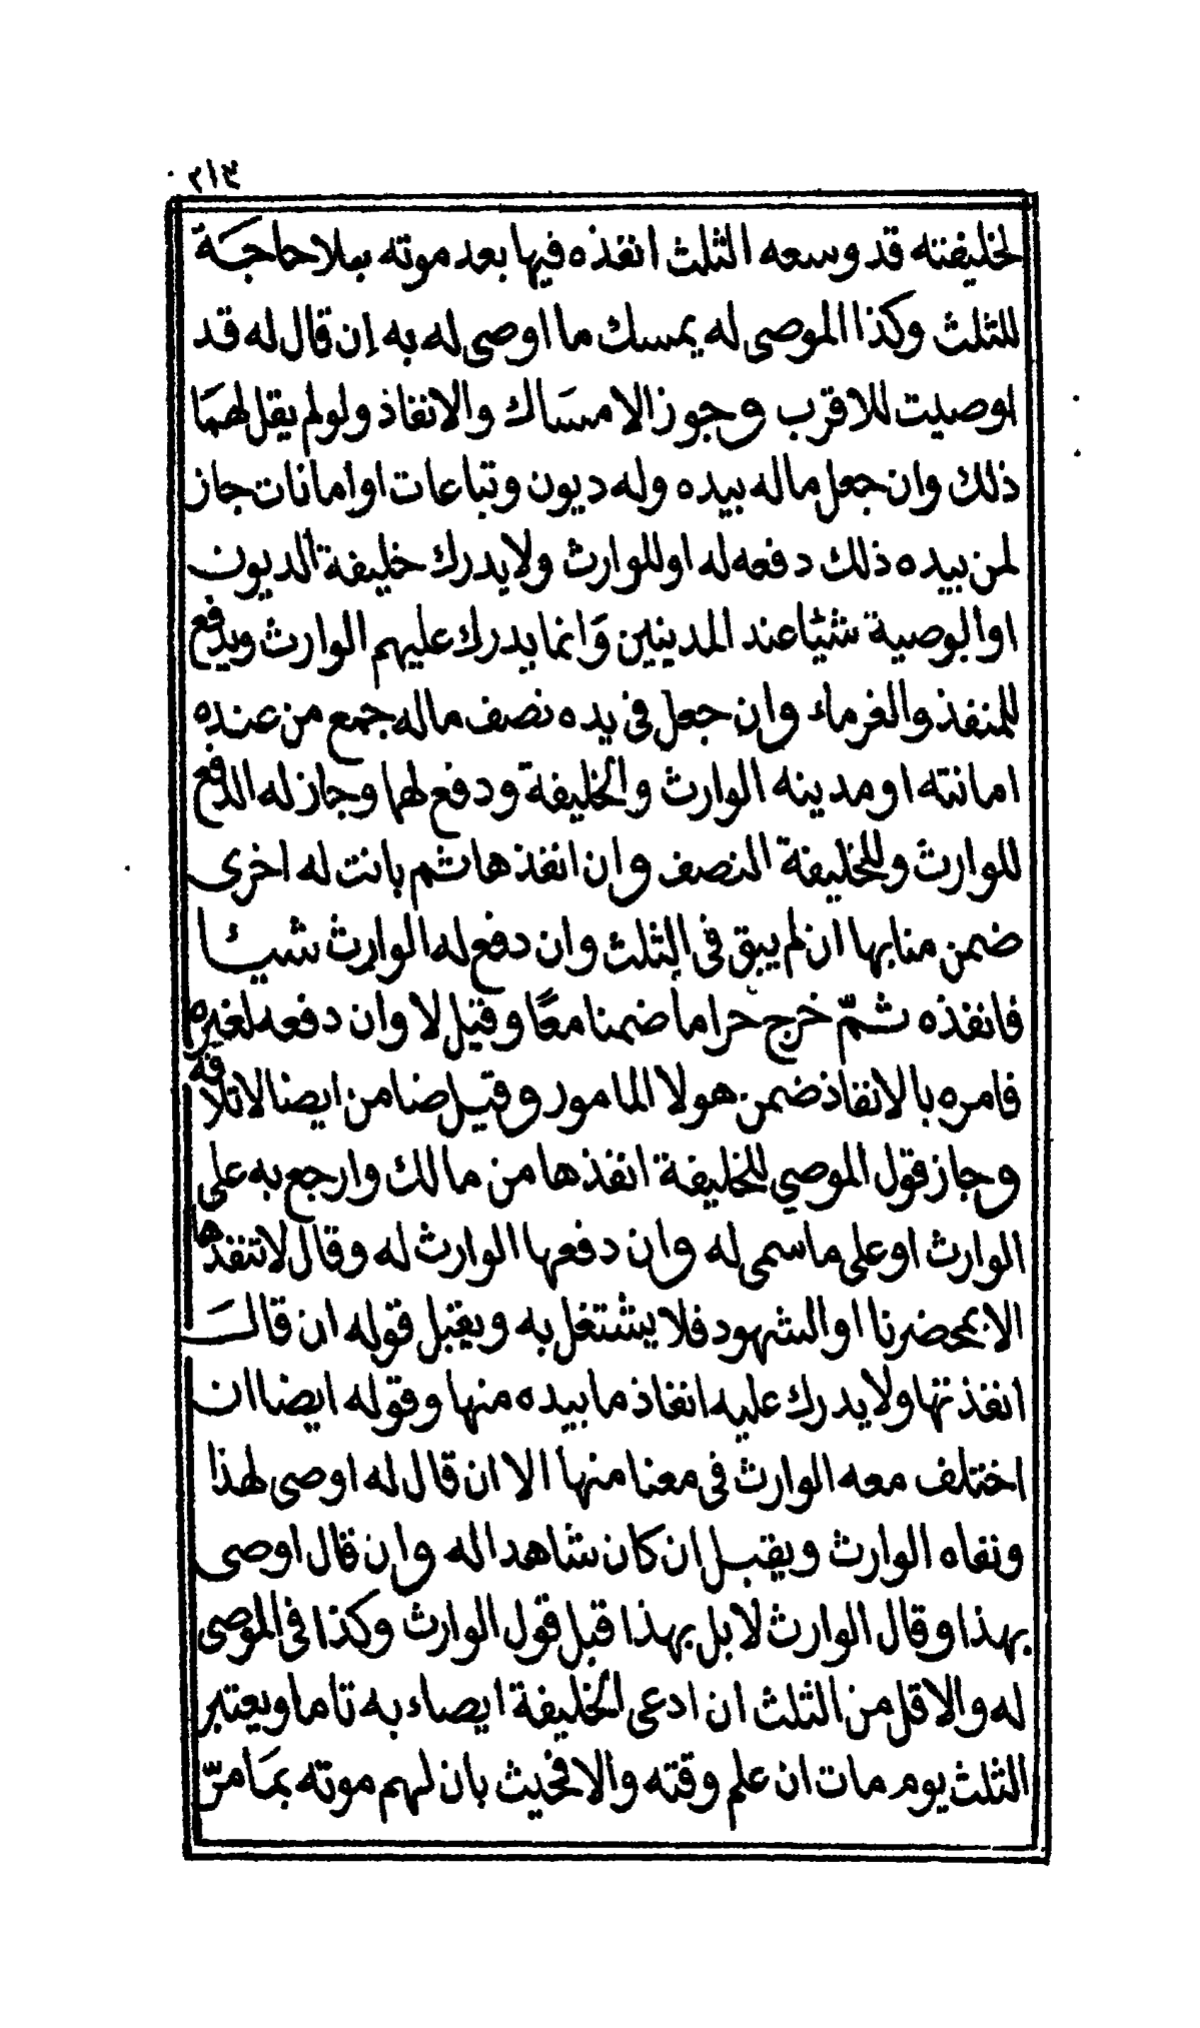 ٢١٣
لخليفته قد وسعه الثلث انفذه فيها بعد موته بلا حاجة
للثلث وكذا الموصى له يمسك ما اوصى له به إن قال له قد
اوصيت للاقرب وجوز الامساك والانفاذ ولو لم يقل لهما
ذلك وان جعل ماله بيده وله ديون وتباعات او امانات جاز
لمن بيده ذلك دفعه له او للوارث ولا يدرك خليفة الديون
او الوصية شيئا عند المدينين وانما يدرك عليهم الوارث ويدفع
للمنفذ والغرماء وان جعل في يده نصف ماله جمع من عنده
امانته او مدينه الوارث والخليفة ودفع لهما وجاز له الدفع
للوارث وللخليفة النصف وان انفذها ثم بانت له اخرى
ضمن منابها ان لم يبق في الثلث وان دفع له الوارث شيئا
فانفذه ثمّ خرج حراما ضمنا معًا وقيل لا وان دفعه لغيره
فامره بالانفاذ ضمن هولا المامور وقيل ضامن ايضا لاتلافه
وجاز قول الموصي للخليفة انفذها من مالك وارجع به على
الوارث او على ما سمى له وان دفعها الوارث له وقال لا تنفذها
الا بمحضرنا او الشهود فلا يشتغل به ويقبل قوله ان قال
انفذتها ولا يدرك عليه انفاذ ما بيده منها وقوله ايضا ان
اختلف معه الوارث في معنا منها الا ان قال له اوصى لهذا
ونفاه الوارث ويقبل ان كان شاهدا له وان قال اوصى
بهذا وقال الوارث لا بل بهذا قبل قول الوارث وكذا في الموصى
له والاقل من الثلث ان ادعى الخليفة ايصاء به تاما ويعتبر
الثلث يوم مات ان علم وقته والا فحيث بان لهم موته بما مرّ